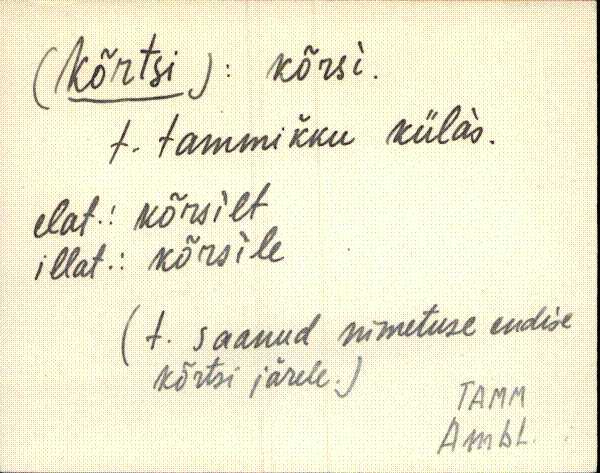 (Kõrtsi): kõrsì.
t. tammikku külàs.
elat.: kõrsìlt
illat.: kõrsìle
(t. saanud nimetuse endise
kõrtsi järele.)
TAMM
Ambl.